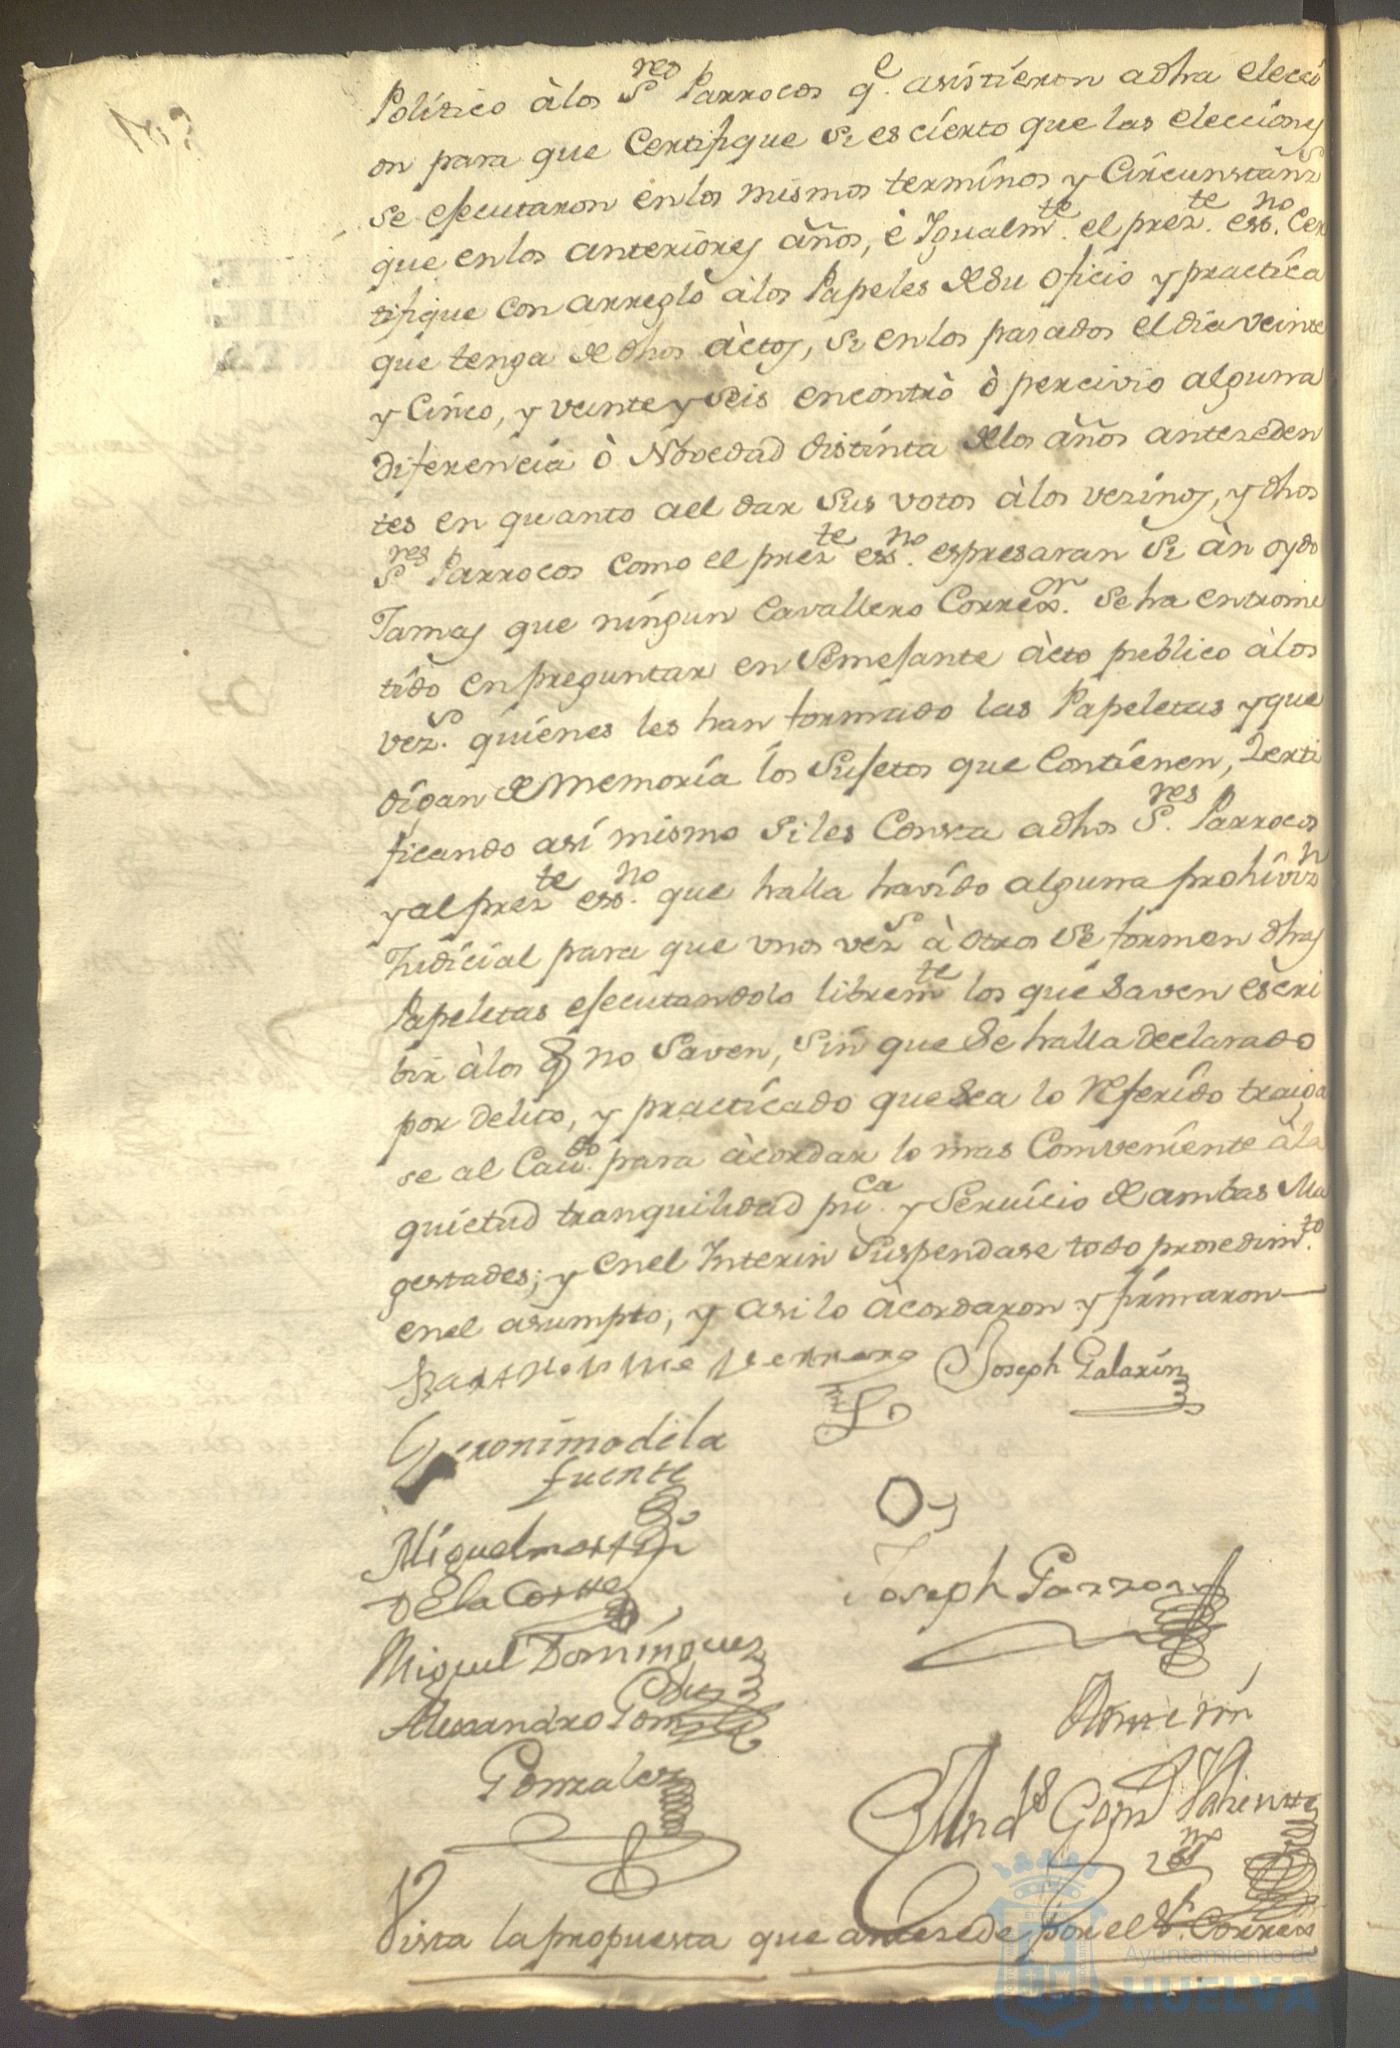 Politico à los S.res Parrocos q.e asistieron adha elecci
on para que Certifique si es cierto que las elecciones
se efecutaron en los mismos terminos y Circunstan.s
que en los anteriores años, è Igualm.te el prez.te ess.no Cer
tifique con arreglo à los Papeles de su oficio y practica
que tenga de dhos àctos, si en los pasados el dia veinte
y Cinco, y veinte y seis encontrò ò percivio alguna
diferencia ò Novedad distinta de los años anteseden
tes en quanto a el dar sus votos à los vezinos, y dhos
S.res Parrocos como el prez.te ess.no espresaran si àn oydo
Jamas que ningun Cavallero Correx.or se ha entrome
tido en preguntar en Semejante àcto publico à los
vez.s quienes les han formado las Papeletas y que
digan de memoria los sujetos que Contienen, Zerti
ficando asi mismo si les Consta adhos S.res Parrocos
y al prez.te ess.no que halla havido alguna prohiviz.n
Judicial para que unos vez.s à otros se formen dhas
Papeletas efecutandolo librem.te los que saven escri
bir à los q no saven, sin que se halla declarado
por delito, y practicado que sea lo referido traiga
se al Cav.do para àcordar lo mas Comveniente à la
quietud tranquilidad pu.ca y Servicio de ambas Ma
gestades; y en el Interin suspendase todo prosedim.to
en el asumpto, y asi lo àcordaron y firmaron
Joseph Galarin
Geronimo de la
fuente
Miguel martin
De la Corte
Joseph Garzon
Miguel Dominguez
Alexandro Gomez
Gonzalez
And.s Gom
Vista la propuesta que antesede por el S.r Correx
Ayuntamiento de
HUELVA